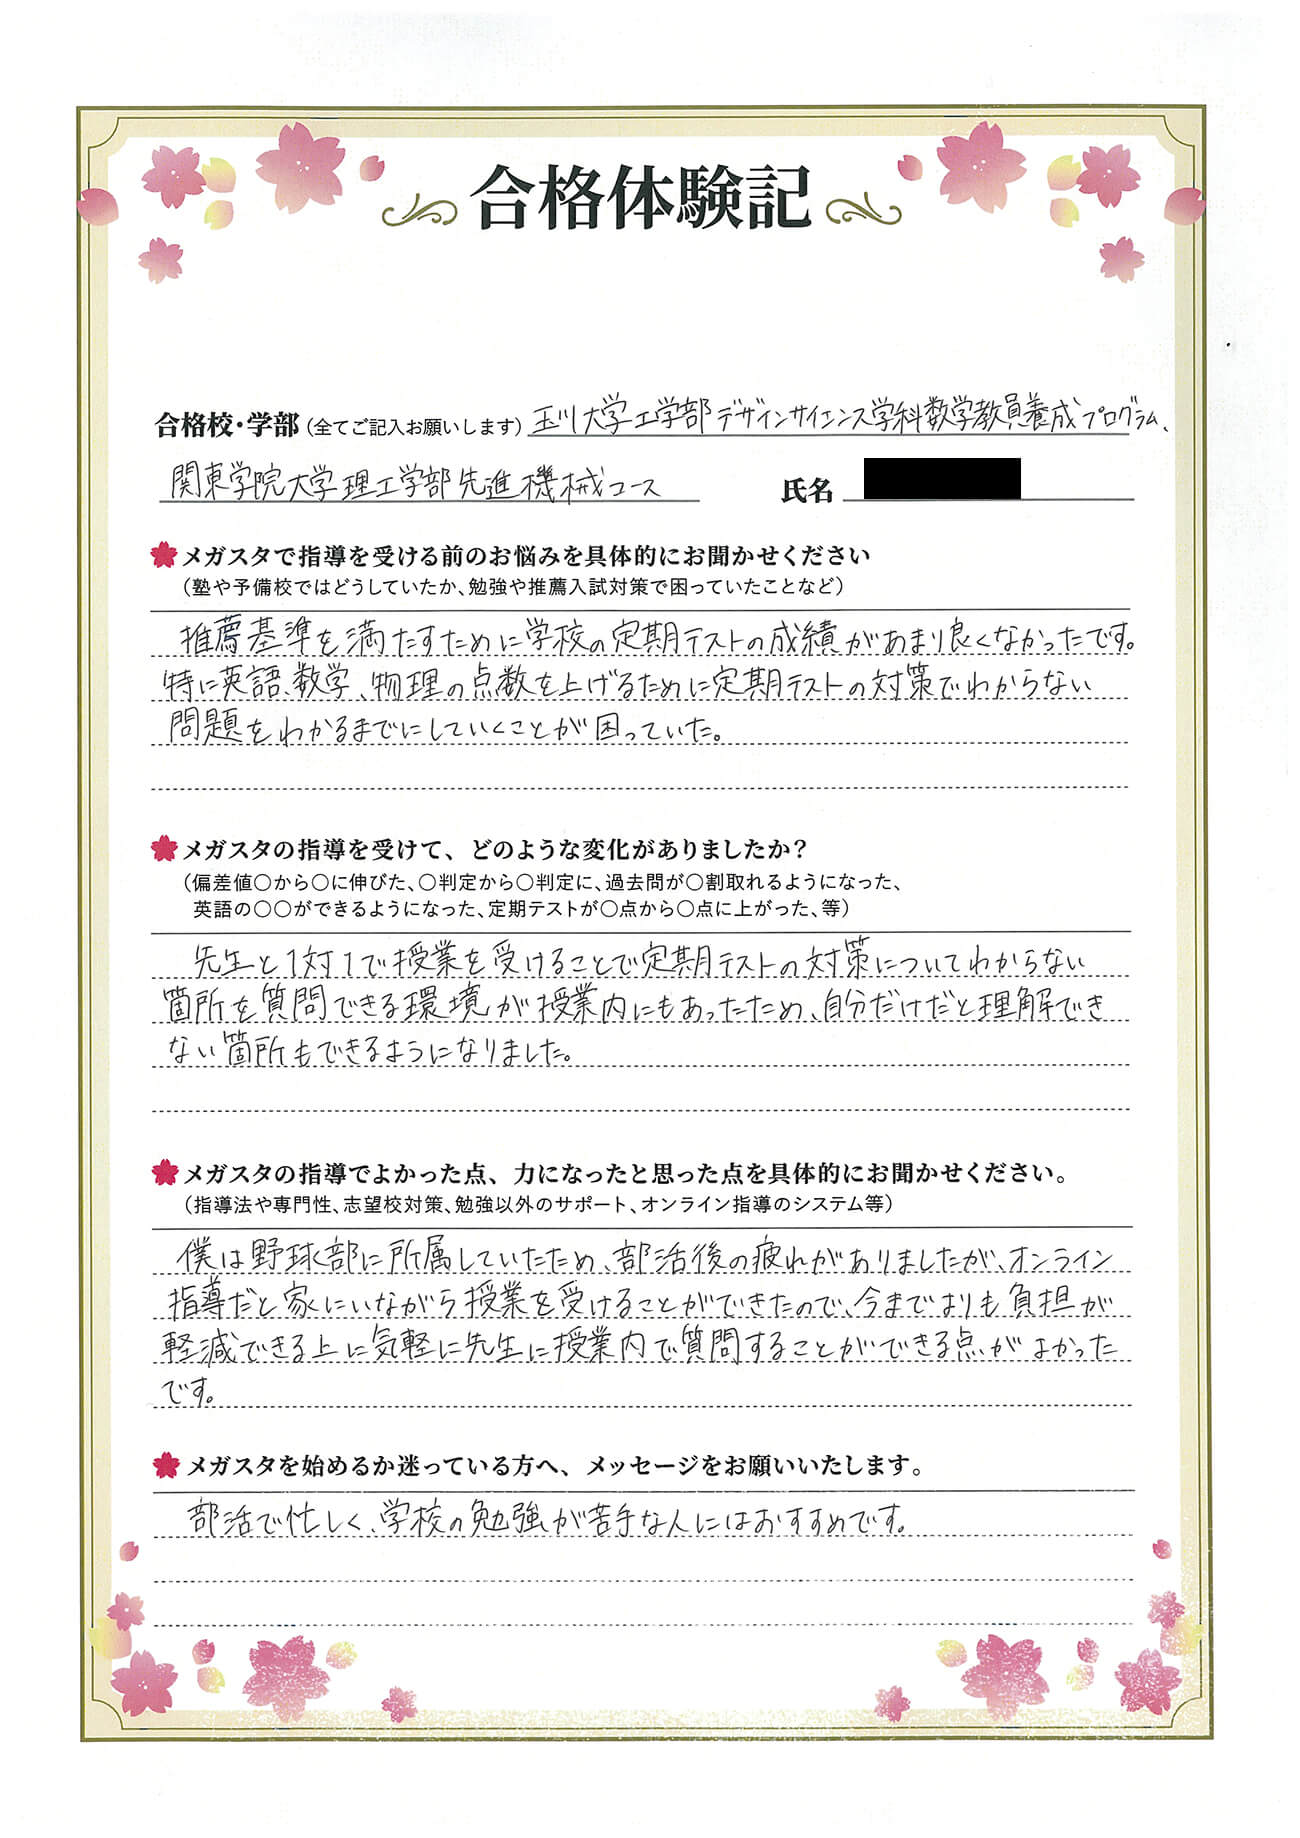 合格体験記
合格校・学部(全てご記入お願いします) 玉川大学工学部デザインサイエンス学科数学教員養成プログラム、
関東学院大学理工学部先進機械コース 氏名
メガスタで指導を受ける前のお悩みを具体的にお聞かせください
(塾や予備校ではどうしていたか、勉強や推薦入試対策で困っていたことなど)
推薦基準を満たすために学校の定期テストの成績があまり良くなかったです。
特に英語、数学、物理の点数を上げるために定期テストの対策でわからない
問題をわかるまでにしていくことが困っていた。
メガスタの指導を受けて、どのような変化がありましたか？
(偏差値〇から〇に伸びた、〇判定から〇判定に、過去問が〇割取れるようになった、
英語の〇〇ができるようになった、定期テストが〇点から〇点に上がった、等)
先生と1対1で授業を受けることで定期テストの対策についてわからない
箇所を質問できる環境が授業内にもあったため、自分だけだと理解でき
ない箇所もできるようになりました。
メガスタの指導でよかった点、力になったと思った点を具体的にお聞かせください。
(指導法や専門性、志望校対策、勉強以外のサポート、オンライン指導のシステム等)
僕は野球部に所属していたため、部活後の疲れがありましたが、オンライン
指導だと家にいながら授業を受けることができたので、今までよりも負担が
軽減できる上に気軽に先生に授業内で質問することができる点がよかった
です。
メガスタを始めるか迷っている方へ、メッセージをお願いいたします。
部活で忙しく、学校の勉強が苦手な人にはおすすめです。